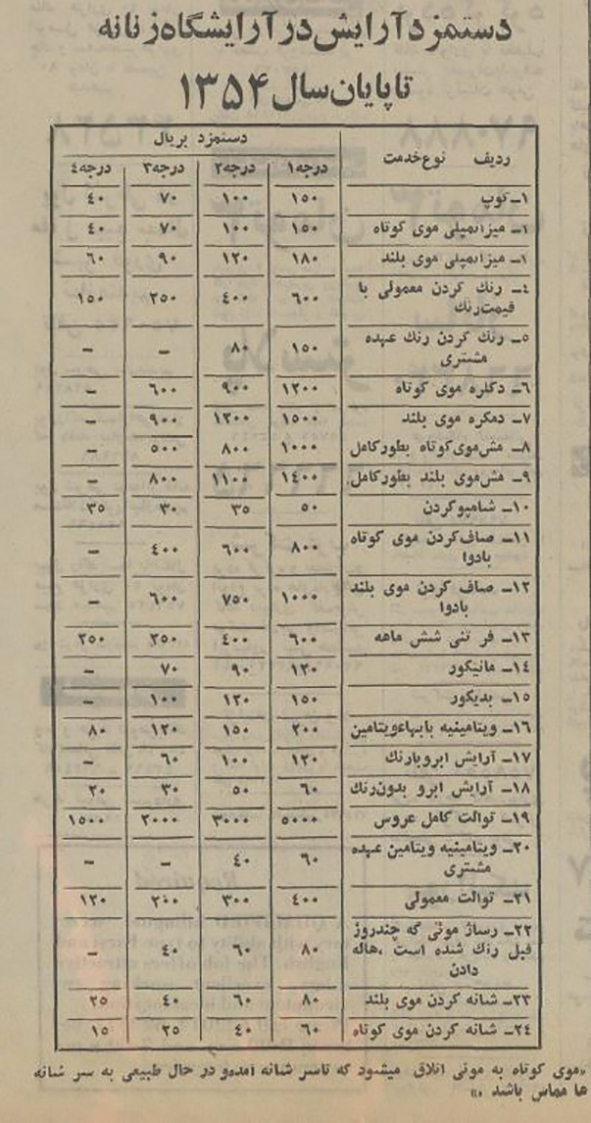 دستمزد آرایش در آرایشگاه زنانه
تا پایان سال ۱۳۵۴
ردیف نوع خدمت دستمزد بریال
درجه۱ درجه۲ درجه۳ درجه٤
۱ـ کوپ ۱۵۰ ۱۰۰ ۷۰ ٤۰
۱ـ میزانپلی موی کوتاه ۱۵۰ ۱۰۰ ۷۰ ٤۰
۱ـ میزانپلی موی بلند ۱۸۰ ۱۲۰ ۹۰ ٦۰
٤ـ رنك کردن معمولی با
قیمت رنك ٦۰۰ ٤۰۰ ۲۵۰ ۱۵۰
۵ـ رنك کردن رنك عهده
مشتری ۱۵۰ ۸۰ – –
٦ـ دکلره موی کوتاه ۱۲۰۰ ۹۰۰ ٦۰۰ –
۷ـ دمکره موی بلند ۱۵۰۰ ۱۲۰۰ ۹۰۰ –
۸ـ مش موی کوتاه بطور کامل ۱۰۰۰ ۸۰۰ ۵۰۰ –
۹ـ مش موی بلند بطور کامل ۱٤۰۰ ۱۱۰۰ ۸۰۰ –
۱۰ـ شامپو کردن ۵۰ ۳۵ ۳۰ ۳۵
۱۱ـ صاف کردن موی کوتاه
بادوا ۸۰۰ ٦۰۰ ٤۰۰ –
۱۲ـ صاف کردن موی بلند
بادوا ۱۰۰۰ ۷۵۰ ٦۰۰ –
۱۳ـ فر تنی شش ماهه ٦۰۰ ٤۰۰ ۲۵۰ ۲۵۰
۱٤ـ مانیکور ۱۲۰ ۹۰ ۷۰ –
۱۵ـ بدیکور ۱۵۰ ۱۲۰ ۱۰۰ –
۱٦ـ ویتامینیه بابهاء ویتامین ۲۰۰ ۱۵۰ ۱۲۰ ۸۰
۱۷ـ آرایش ابرو بارنك ۱۲۰ ۱۰۰ ٦۰ –
۱۸ـ آرایش ابرو بدون رنك ٦۰ ۵۰ ۳۰ ۲۰
۱۹ـ توالت کامل عروس ۵۰۰۰ ۳۰۰۰ ۲۰۰۰ ۱۵۰۰
۲۰ـ ویتامینیه ویتامین عهده
مشتری ٦۰ ٤۰ – –
۲۱ـ توالت معمولی ٤۰۰ ۳۰۰ ۲۰۰ ۱۲۰
۲۲ـ رساژ موئی که چندروز
قبل رنك شده است ،هاله
دادن ۸۰ ٦۰ ٤۰ –
۲۳ـ شانه کردن موی بلند ۸۰ ٦۰ ٤۰ ۲۵
۲٤ـ شانه کردن موی کوتاه ٦۰ ٤۰ ۲۵ ۱۵
«موی کوتاه به موئی اتلاق میشود که تاسر شانه آمده و در حال طبیعی به سر شانه
ها مماس باشد .»